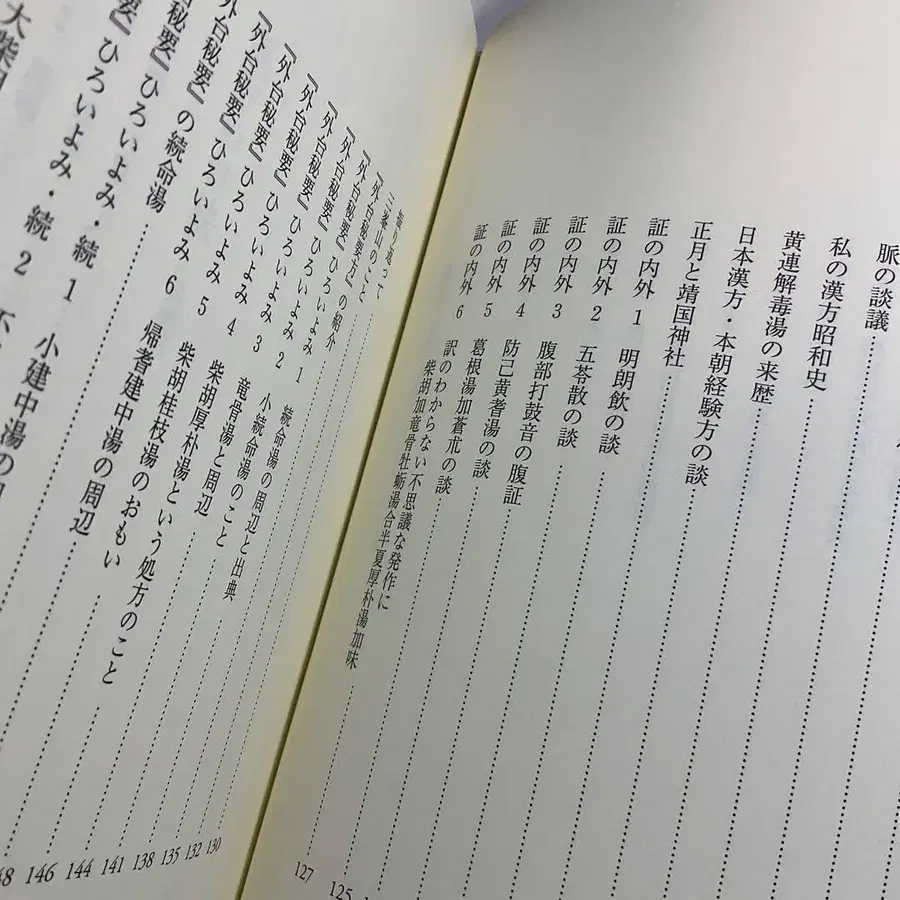 脈の談議
私の漢方昭和史
黄連解毒湯の来歴
日本漢方・本朝経験方の談
正月と靖国神社
証の内外 1 明朗飲の談
証の内外 2 五苓散の談
証の内外 3 腹部打鼓音の腹証
証の内外 4 防己黄耆湯の談
証の内外 5 葛根湯加蒼朮の談 125
証の内外 6 訳のわからない不思議な発作に
柴胡加竜骨牡蛎湯合半夏厚朴湯加味 127
振り返って
三峯山のこと
『外台秘要方』の紹介
『外台秘要』ひろいよみ 1 続命湯の周辺と出典
『外台秘要』ひろいよみ 2 小続命湯のこと
『外台秘要』ひろいよみ 3 竜骨湯と周辺
『外台秘要』ひろいよみ 4 柴胡厚朴湯という処方のこと
『外台秘要』ひろいよみ 5 柴胡桂枝湯のおもい
『外台秘要』ひろいよみ 6 帰耆建中湯の周辺
『外台秘要』の続命湯
秘要』ひろいよみ・続 1 小建中湯の
要』ひろいよみ・続 2
大柴胡
130
132
135
138
141
144
146